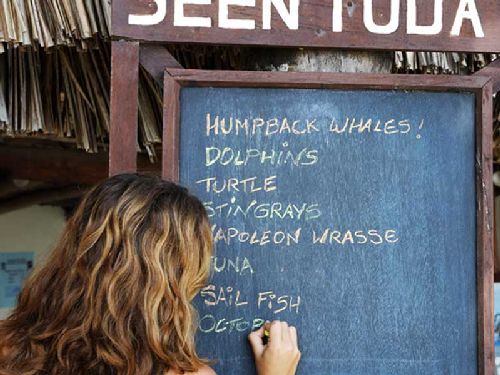 SEEN TODA
HUMPBACK WHALES!
DOLPHINS
TURTLE
STINGRAYS
NAPOLEON WRASSE
TUNA
SAIL FISH
OCTOP